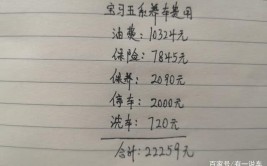 宝马五系养车费用
油费：10324元
保险：7845元
保养：2090元
停车：2000元
洗车：720元
合计：22259元
百家号/有一说车